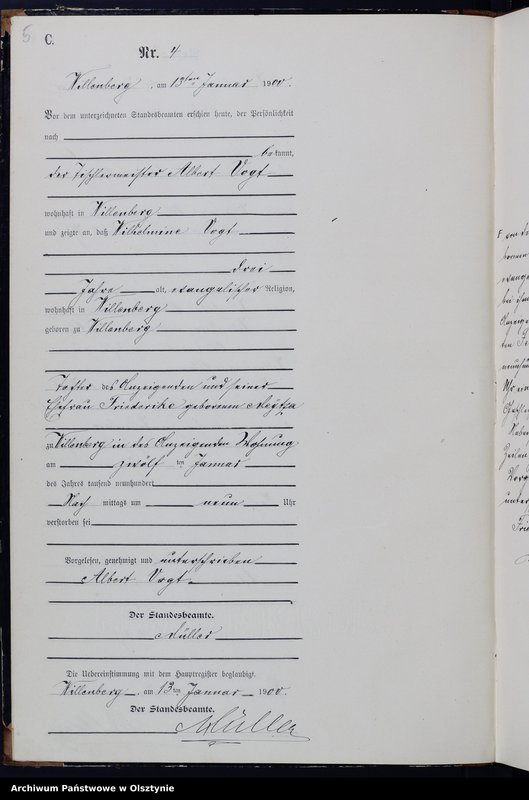 5
C.
Nr. 4
Willenberg, am 13ten Januar 1900.
Vor dem unterzeichneten Standesbeamten erschien heute, der Persönlichkeit
nach
bekannt,
der Tischlermeister Albert Vogt
wohnhaft in Willenberg
und zeigte an, daß Wilhelmine Vogt
drei
Jahre alt, evangelischer Religion,
wohnhaft in Willenberg
geboren zu Willenberg
Tochter des Anzeigenden und seiner
Ehefrau Friederike geborenen
zu Willenberg in des Anzeigenden Wohnung
am zwölf ten Januar
des Jahres tausend neunhundert
Nach mittags um neun Uhr
verstorben sei
Vorgelesen, genehmigt und unterschrieben
Albert Vogt.
Der Standesbeamte.
Müller
Die Uebereinstimmung mit dem Hauptregister beglaubigt.
Willenberg, am 13ten Januar 1900.
Der Standesbeamte.
Müller
Archiwum Państwowe w Olsztynie